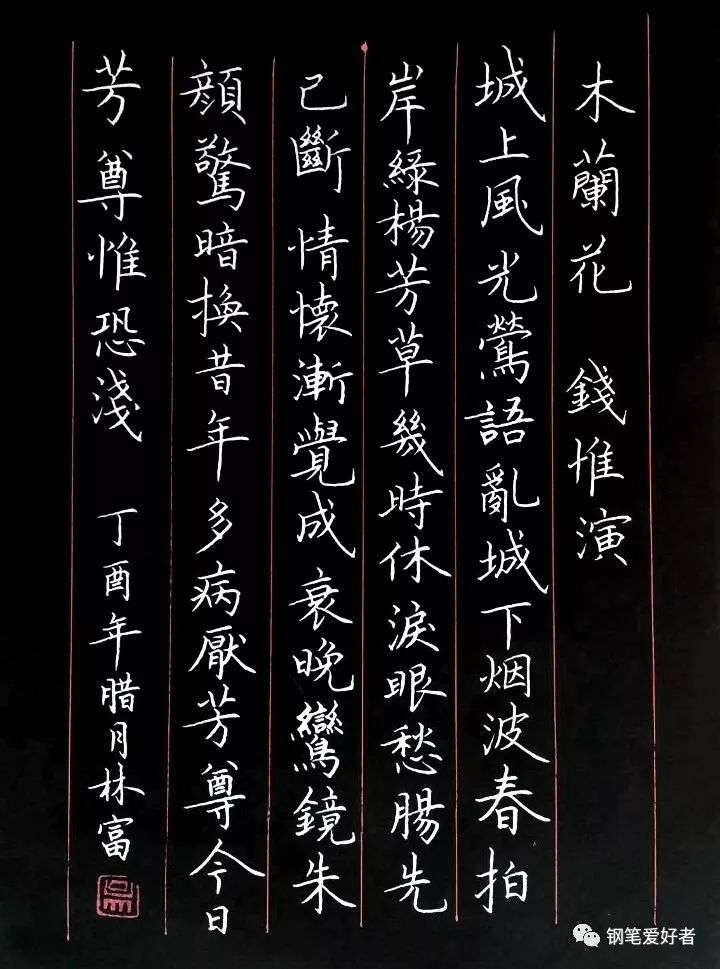 木蘭花 錢惟演
城上風光鶯語亂城下烟波春拍
岸綠楊芳草幾時休淚眼愁腸先
已斷情懷漸覺成衰晚鸞鏡朱
顏驚暗換昔年多病厭芳尊今日
芳尊惟恐淺 丁酉年腊月林富
钢笔爱好者